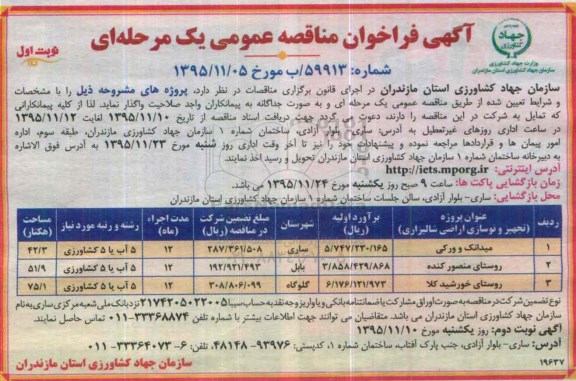 آگهی فراخوان مناقصه عمومی یک مرحله‌ای
نوبت اول
جهاد کشاورزی
وزارت جهاد کشاورزی
سازمان جهاد کشاورزی استان مازندران
شماره: ۵۹۹۱۳/ب مورخ ۱۳۹۵/۱۱/۰۵
سازمان جهاد کشاورزی استان مازندران در اجرای قانون برگزاری مناقصات در نظر دارد، پروژه های مشروحه ذیل را با مشخصات
و شرایط تعیین شده از طریق مناقصه عمومی یک مرحله ای و به صورت جداگانه به پیمانکاران واجد صلاحیت واگذار نماید. لذا از کلیه پیمانکارانی
که تمایل به شرکت در این مناقصه را دارند، دعوت می گردد جهت دریافت اسناد مناقصه از تاریخ ۱۳۹۵/۱۱/۱۰ لغایت ۱۳۹۵/۱۱/۱۲
در ساعت اداری روزهای غیرتعطیل به آدرس: ساری- بلوار آزادی، ساختمان شماره ۱ سازمان جهاد کشاورزی مازندران، طبقه سوم، اداره
امور پیمان ها و قراردادها مراجعه نموده و پیشنهادات خود را نیز تا آخر وقت اداری روز شنبه مورخ ۱۳۹۵/۱۱/۲۳ به آدرس فوق الاشاره
به دبیرخانه ساختمان شماره ۱ سازمان جهاد کشاورزی استان مازندران تحویل و رسید اخذ نمایند.
آدرس اینترنتی: http://iets.mporg.ir
زمان بازگشایی پاکت ها: ساعت ۹ صبح روز یکشنبه مورخ ۱۳۹۵/۱۱/۲۴ می باشد.
محل بازگشایی: ساری- بلوار آزادی، سالن جلسات ساختمان شماره ۱ سازمان جهاد کشاورزی استان مازندران
ردیف عنوان پروژه (تجهیز و نوسازی اراضی شالیزاری) برآورد اولیه (ریال) شهرستان مبلغ تضمین شرکت در مناقصه (ریال) مدت اجراء (ماه) رشته و رتبه مورد نیاز مساحت (هکتار)
۱ میدانک و ورکی ۵/۷۴۷/۲۳۰/۱۶۵ ساری ۲۸۷/۳۶۱/۵۰۸ ۱۲ ۵ آب یا ۵ کشاورزی ۴۲/۳
۲ روستای منصور کنده ۳/۸۵۸/۴۲۹/۸۶۸ بابل ۱۹۲/۹۲۱/۴۹۳ ۱۲ ۵ آب یا ۵ کشاورزی ۵۱/۹
۳ روستای خورشید کلا ۶/۱۷۶/۱۲۱/۹۷۳ گلوگاه ۳۰۸/۸۰۶/۰۹۹ ۱۲ ۵ آب یا ۵ کشاورزی ۷۵/۱
نوع تضمین شرکت در مناقصه به صورت اوراق مشارکت یا ضمانتنامه بانکی و یا واریز وجه نقد به حساب سیبا ۲۱۷۴۲۰۵۰۲۲۰۰۵ نزد بانک ملی شعبه مرکزی ساری به نام
سازمان جهاد کشاورزی استان مازندران می باشد. متقاضیان می توانند جهت اطلاعات بیشتر با شماره تلفن ۳۳۳۶۸۸۷۴-۰۱۱ تماس حاصل نمایند.
آگهی نوبت دوم: روز یکشنبه مورخ ۱۳۹۵/۱۱/۱۰
آدرس: ساری- بلوار آزادی، جنب پارک آفتاب، ساختمان شماره ۱، کدپستی: ۹۳۹۷۶-۴۸۱۴۸، تلفن: ۶-۳۳۳۶۴۰۷۳-۰۱۱
سازمان جهاد کشاورزی استان مازندران
۱۹۶۳۷